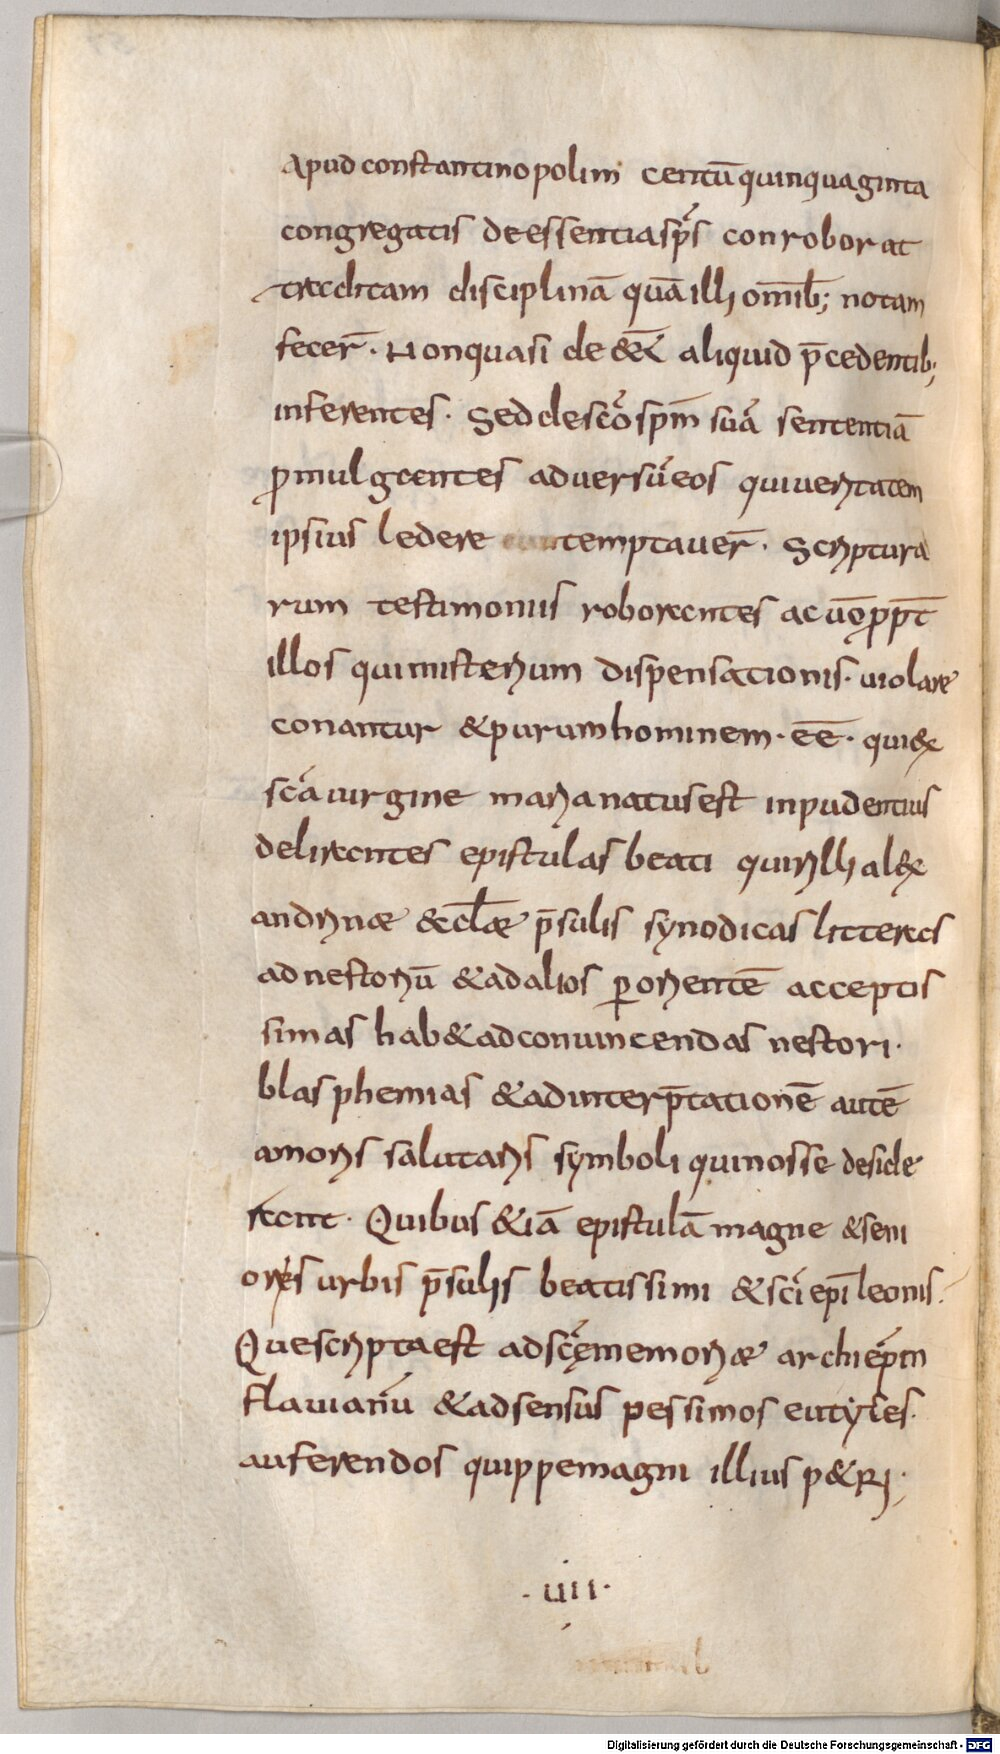 Apud constantinopolim centū quinquaginta
congregatis de essentia sp̄s conroborat
traditam disciplinā quā illi omīb; notam
fecer̄. Non quasi de eēt aliquid p̄cedentib;
inferentes. Sed de scō spm̄ suā sententiā
ꝓmulgantes adversū eos qui veritatem
ipsius ledere temptaver̄. Scriptura
rum testimoniis roborantes ac vō ꝓpt̄
illos qui misterium dispensationis. violare
conantur & purum hominem. eē. qui ex
scā virgine maria natus est inpudentius
delirantes epistulas beati quirilli alex
andrinae & eclae p̄sulis synodicas litteras
ad nestoriū & ad alios ꝑ orientē acceptis
simas hab& ad convincendas nestori.
blasphemias & ad interp̄tationē autē
amoris salutaris symboli qui nosse deside
rant. Quibus &iā epistulā magne & seni
oris urbis p̄sulis beatissimi & scī epī leonis.
Que scripta est ad scę memoriae archiepm̄
flavianū & ad sensus pessimos eutyces.
auferendos quippe magni illius p&ri;
.viii.